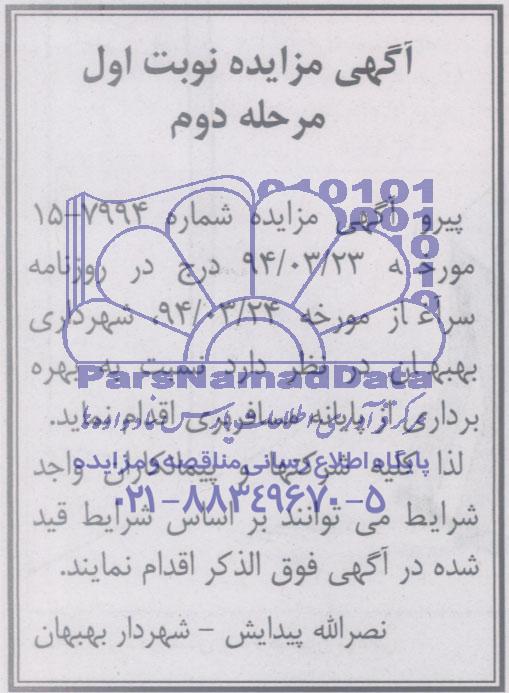 آگهی مزایده نوبت اول
مرحله دوم
پیرو آگهی مزایده شماره ۷۹۹۴-۱۵
مورخه ۹۴/۰۳/۲۳ درج در روزنامه
سرآغاز مورخه ۹۴/۰۳/۲۴، شهرداری
بهبهان در نظر دارد نسبت به بهره
برداری از پایانه مسافربری اقدام نماید.
لذا کلیه شرکتها و پیمانکاران واجد
شرایط می توانند بر اساس شرایط قید
شده در آگهی فوق الذکر اقدام نمایند.
نصرالله پیدایش – شهردار بهبهان
010101
ParsNamadData
پایگاه اطلاع رسانی مناقصه و مزایده
۰۲۱-۸۸۳۴۹۶۷۰-۵